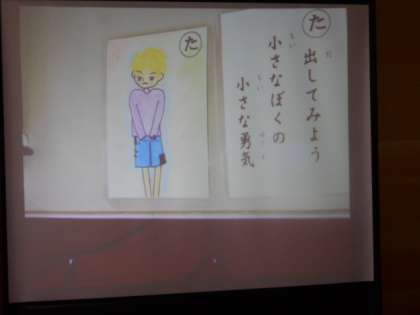 た
た
出してみよう
小さなぼくの
小さな勇気